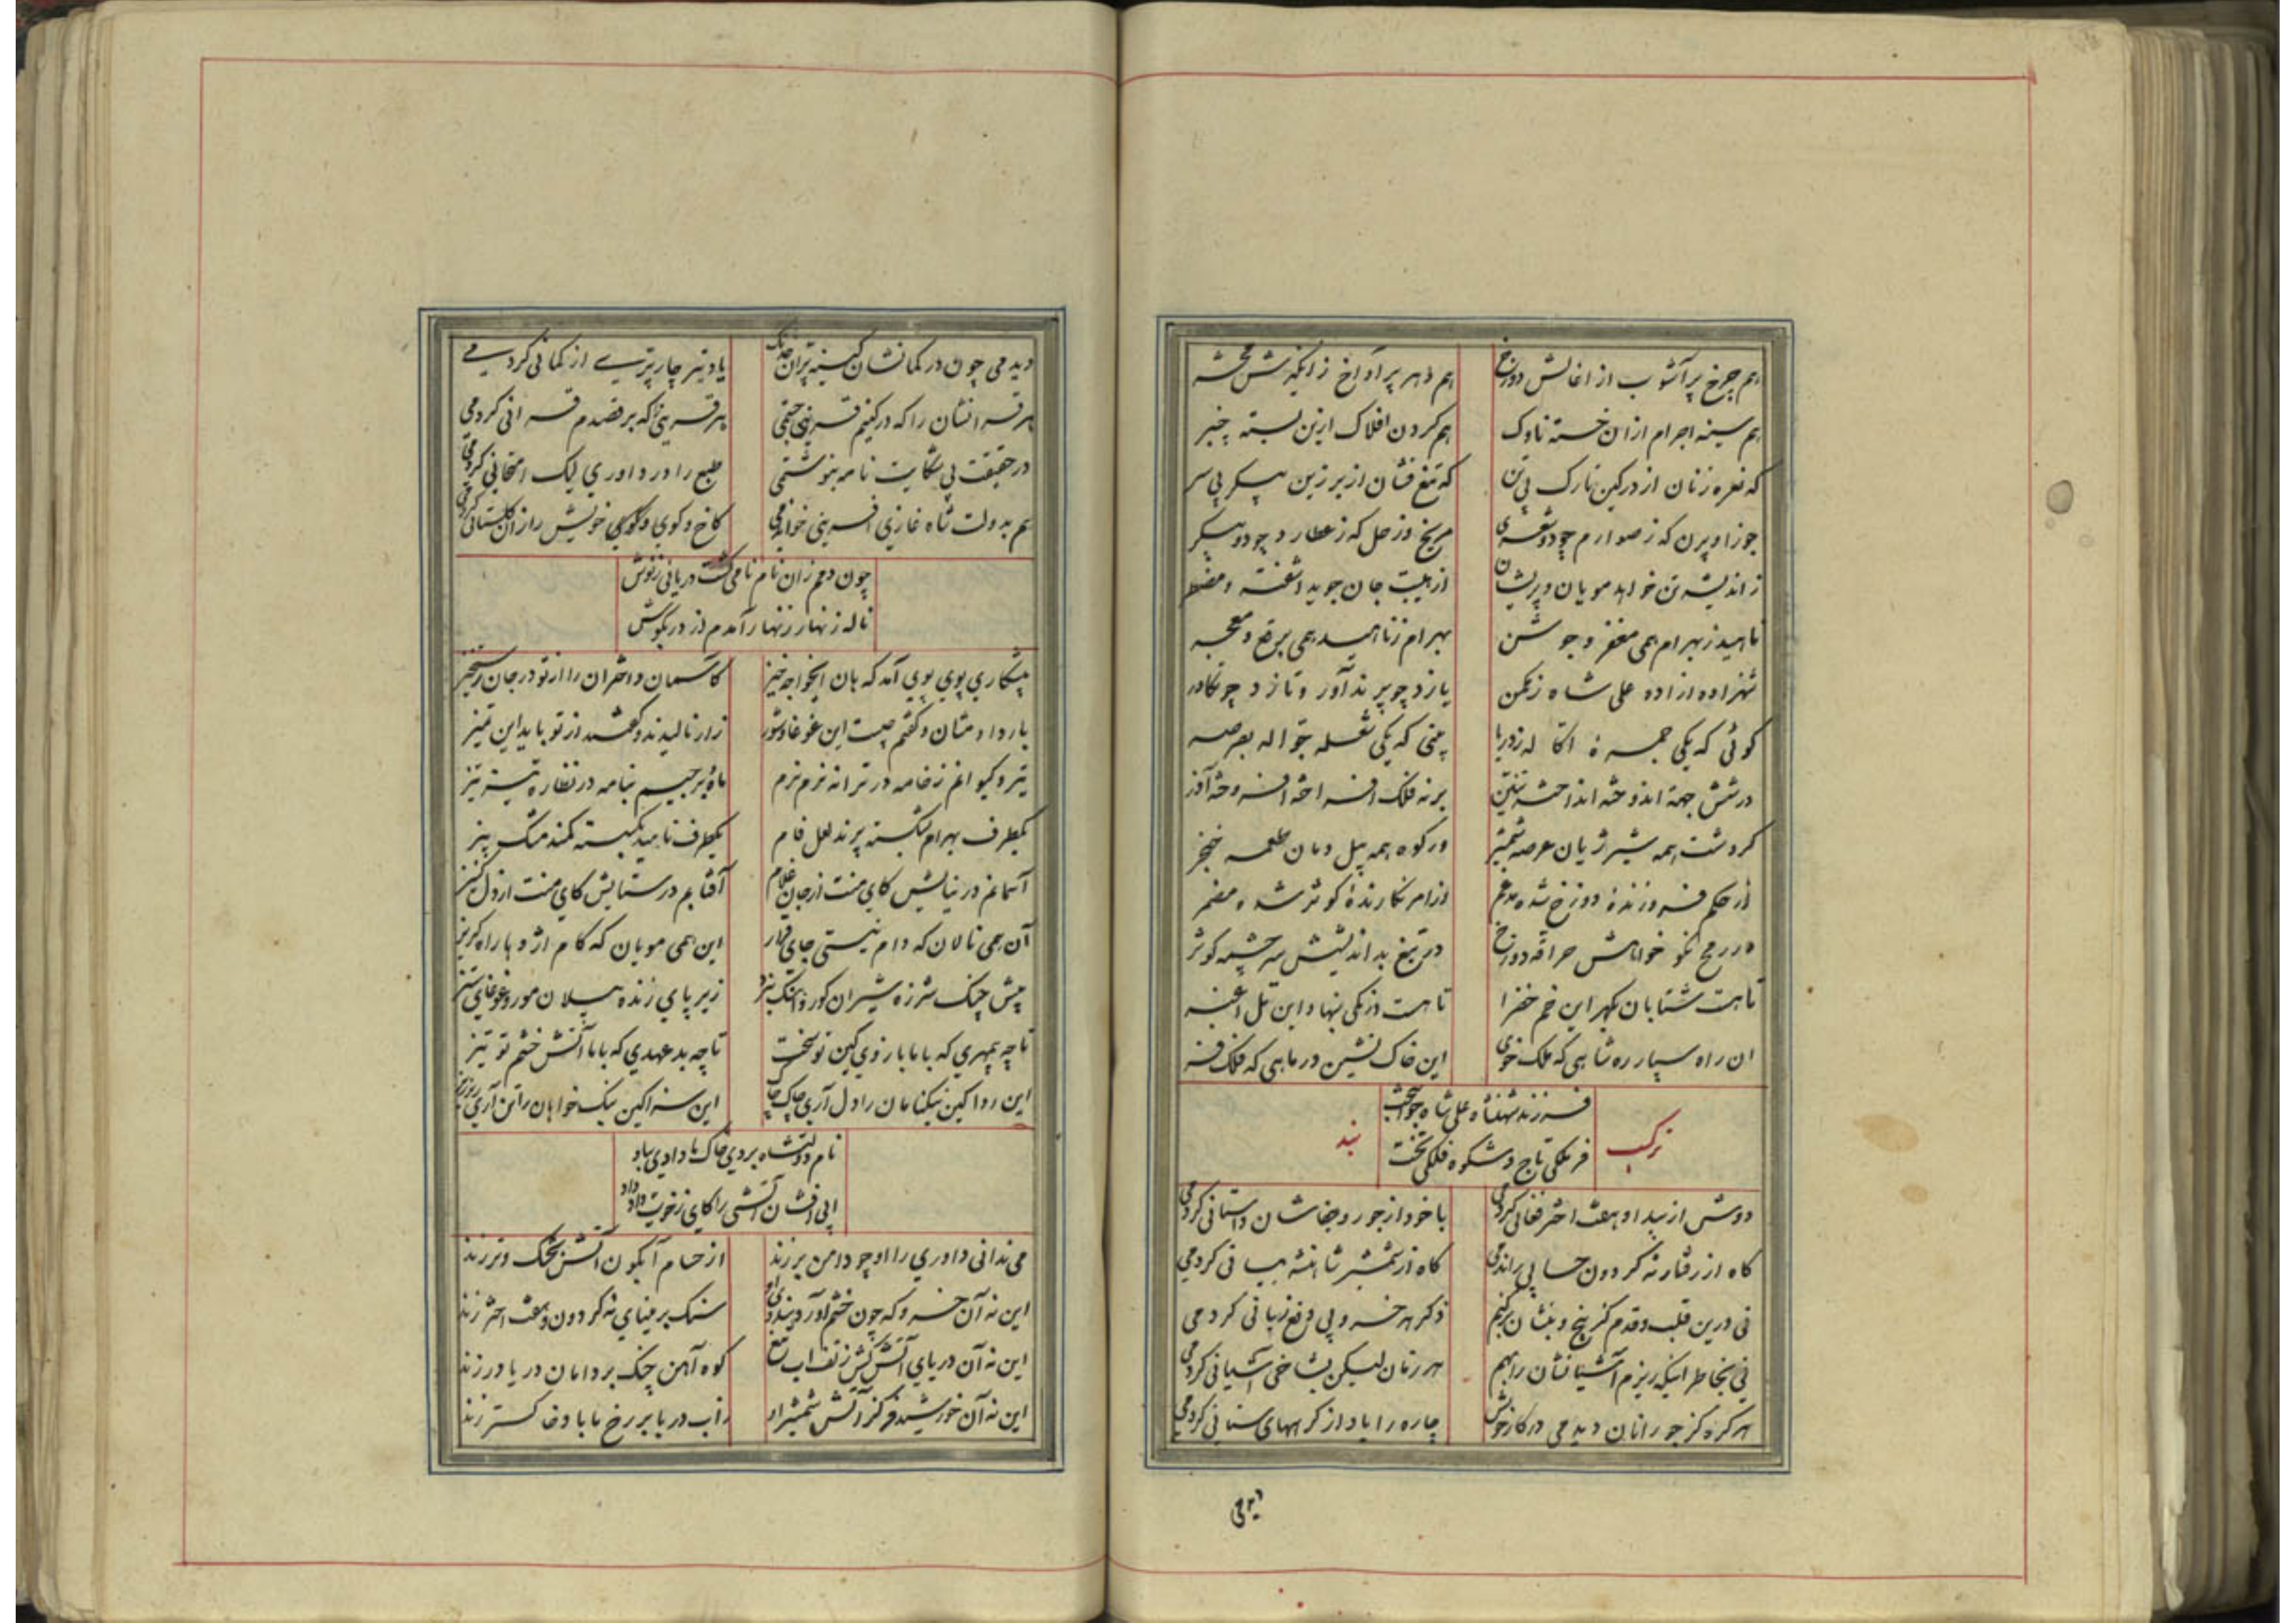 هم چرخ پر آشوب از اغالش دوزخ
هم دهر پر آواخ ز انگیزش محشر
هم سینه اجرام ازان خسته ناوک
هم کردن افلاک ازین بسته چنبر
که نعره زنان از در کین تارک بی تن
که تیغ فشان از بر زین پیکر بی سر
مریخ وزحل که ز عطارد چو دو پیکر
ز اندیشه تن خواهد مویان وپریشان
از هیبت جان جوید اشفته ومضطر
ناهید ز بهرام همی مغفر وجوشن
بهرام ز ناهید همی برقع ومعجر
شهزاده ازاده علی شاه
یازد چو پرند آور وتازد چو تکاور
کوئی که یکی ز دریا
بینی که یکی شعله جواله بصرصر
در شش جهة اندوخته انداخته تنین
بر نه فلک افراخته افروخته آذر
کر دشت همه شیر ژیان عرصه شمشیر
ور کوه همه پیل دمان طعمه خنجر
از حکم فروزنده دوزخ شده مدغم
وز امر نکارنده کوثر شده مضمر
در رمح نکو خواهش حراقه دوزخ
در تیغ بداندیشش سرچشمه کوثر
تا هست شتابان بکهر این خم خضرا
تا هست درنکی بنهاد این تل اغبر
ان راه سپار ره شاهی که ملک خوی
این خاک نشین در ماهی که فلک فر
ترکیب
بند
فرزند شهنشاه علی شاه جوانبخت
فر ملکی تاج وشکوه فلکی تخت
دوش از بیداد هفت اختر فغانی کردمی
با خود از جور وجفاشان داستانی کردمی
کاه از رفتار نه کردون حسابی راندمی
کاه از شمشیر شاهنشه بیانی کردمی
نی درین قلب وقدم کز پنج وبنشان برکنم
ذکر هر خسرو پی دفع زیانی کردمی
نی بخاطر اینکه ریزم آشیانشان را بهم
هر زمان لیکن بشاخی آشیانی کردمی
هر کره کز جور انان دیدمی در کار خویش
چاره را یاد از کرههای سنانی کردمی
دیدمی
دیدمی چون در کمانشان کینه پران خدنک
یاد تیر چارپری از کمانی کردمی
هر قرانشان را که در کینم قرینی جستمی
هر قرینی که بر قصدم قرانی کردمی
در حقیقت بی شکایت نامه بنوشتمی
طبع را در داوری لیک امتحانی کردمی
هم بدولت شاه غازی افرینی خواندمی
کاخ وکوی وکوی خویش را زان کلستانی کردمی
چون دهم زان نام نامی کشت دریائی ز نوش
ناله زنهار زنهار آمدم از در بکوش
پیشکاری پوی پوی آمد که هان ایخواجه خیز
کاسمان واختران را از تو در جان رستخیز
بار دادمشان وکفتم چیست این غوغا وشور
زار نالیدند وکفتند از تو باید این تمیز
تیر وکیوانم ز خامه در ترانه نرم نرم
ماه وبرجیسم بنامه در نظاره تیز تیز
یکطرف بهرام بشکسته پرند لعل فام
یکطرف ناهید بکسسته کمند مشک بیز
آسمانم در نیایش کای منت از جان غلام
آفتابم در ستایش کای منت از دل کنیز
آن همی نالان که دام نیستی جای قرار
این همی مویان که کام اژدها راه کریز
پیش چنک شرزه شیران کور وآهنک نبرد
زیر پای زنده پیلان مور وغوغای ستیز
تا چه بیمهری که با ما بازوی کین تو سخت
تا چه بدعهدی که با ما آتش خشم تو تیز
این روا کین نیکنامان را دل آری چاک چاک
این سزا کین نیک خواهان را تن آری ریز ریز
نام دولتشاه بردی خاک ما دادی بباد
آبی افشان آتشی را کای ز خویت داد داد
می ندانی داوری را او چو دامن بر زند
از حسام آبکون آتش بخشک وتر زند
این نه آن خسرو که چون خشم آورد
سنک بر مینای نه کردون وهفت اختر زند
این نه آن دریای آتش کش ز تف اب تیغ
کوه آهن چنک بر دامان دریا در زند
این نه آن خورشید فر کز آتش شمشیر او
آب دریا بر رخ ما باد خاکستر زند